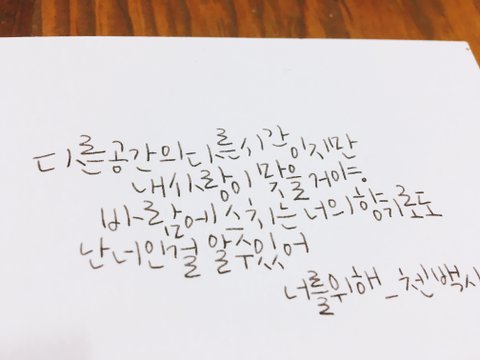 다른공간의 다른시간 이지만
내사랑이 맞을거야.
바람에 스치는 너의 향기로도
난 너인걸 알수있어
너를위해 _ 첸백시